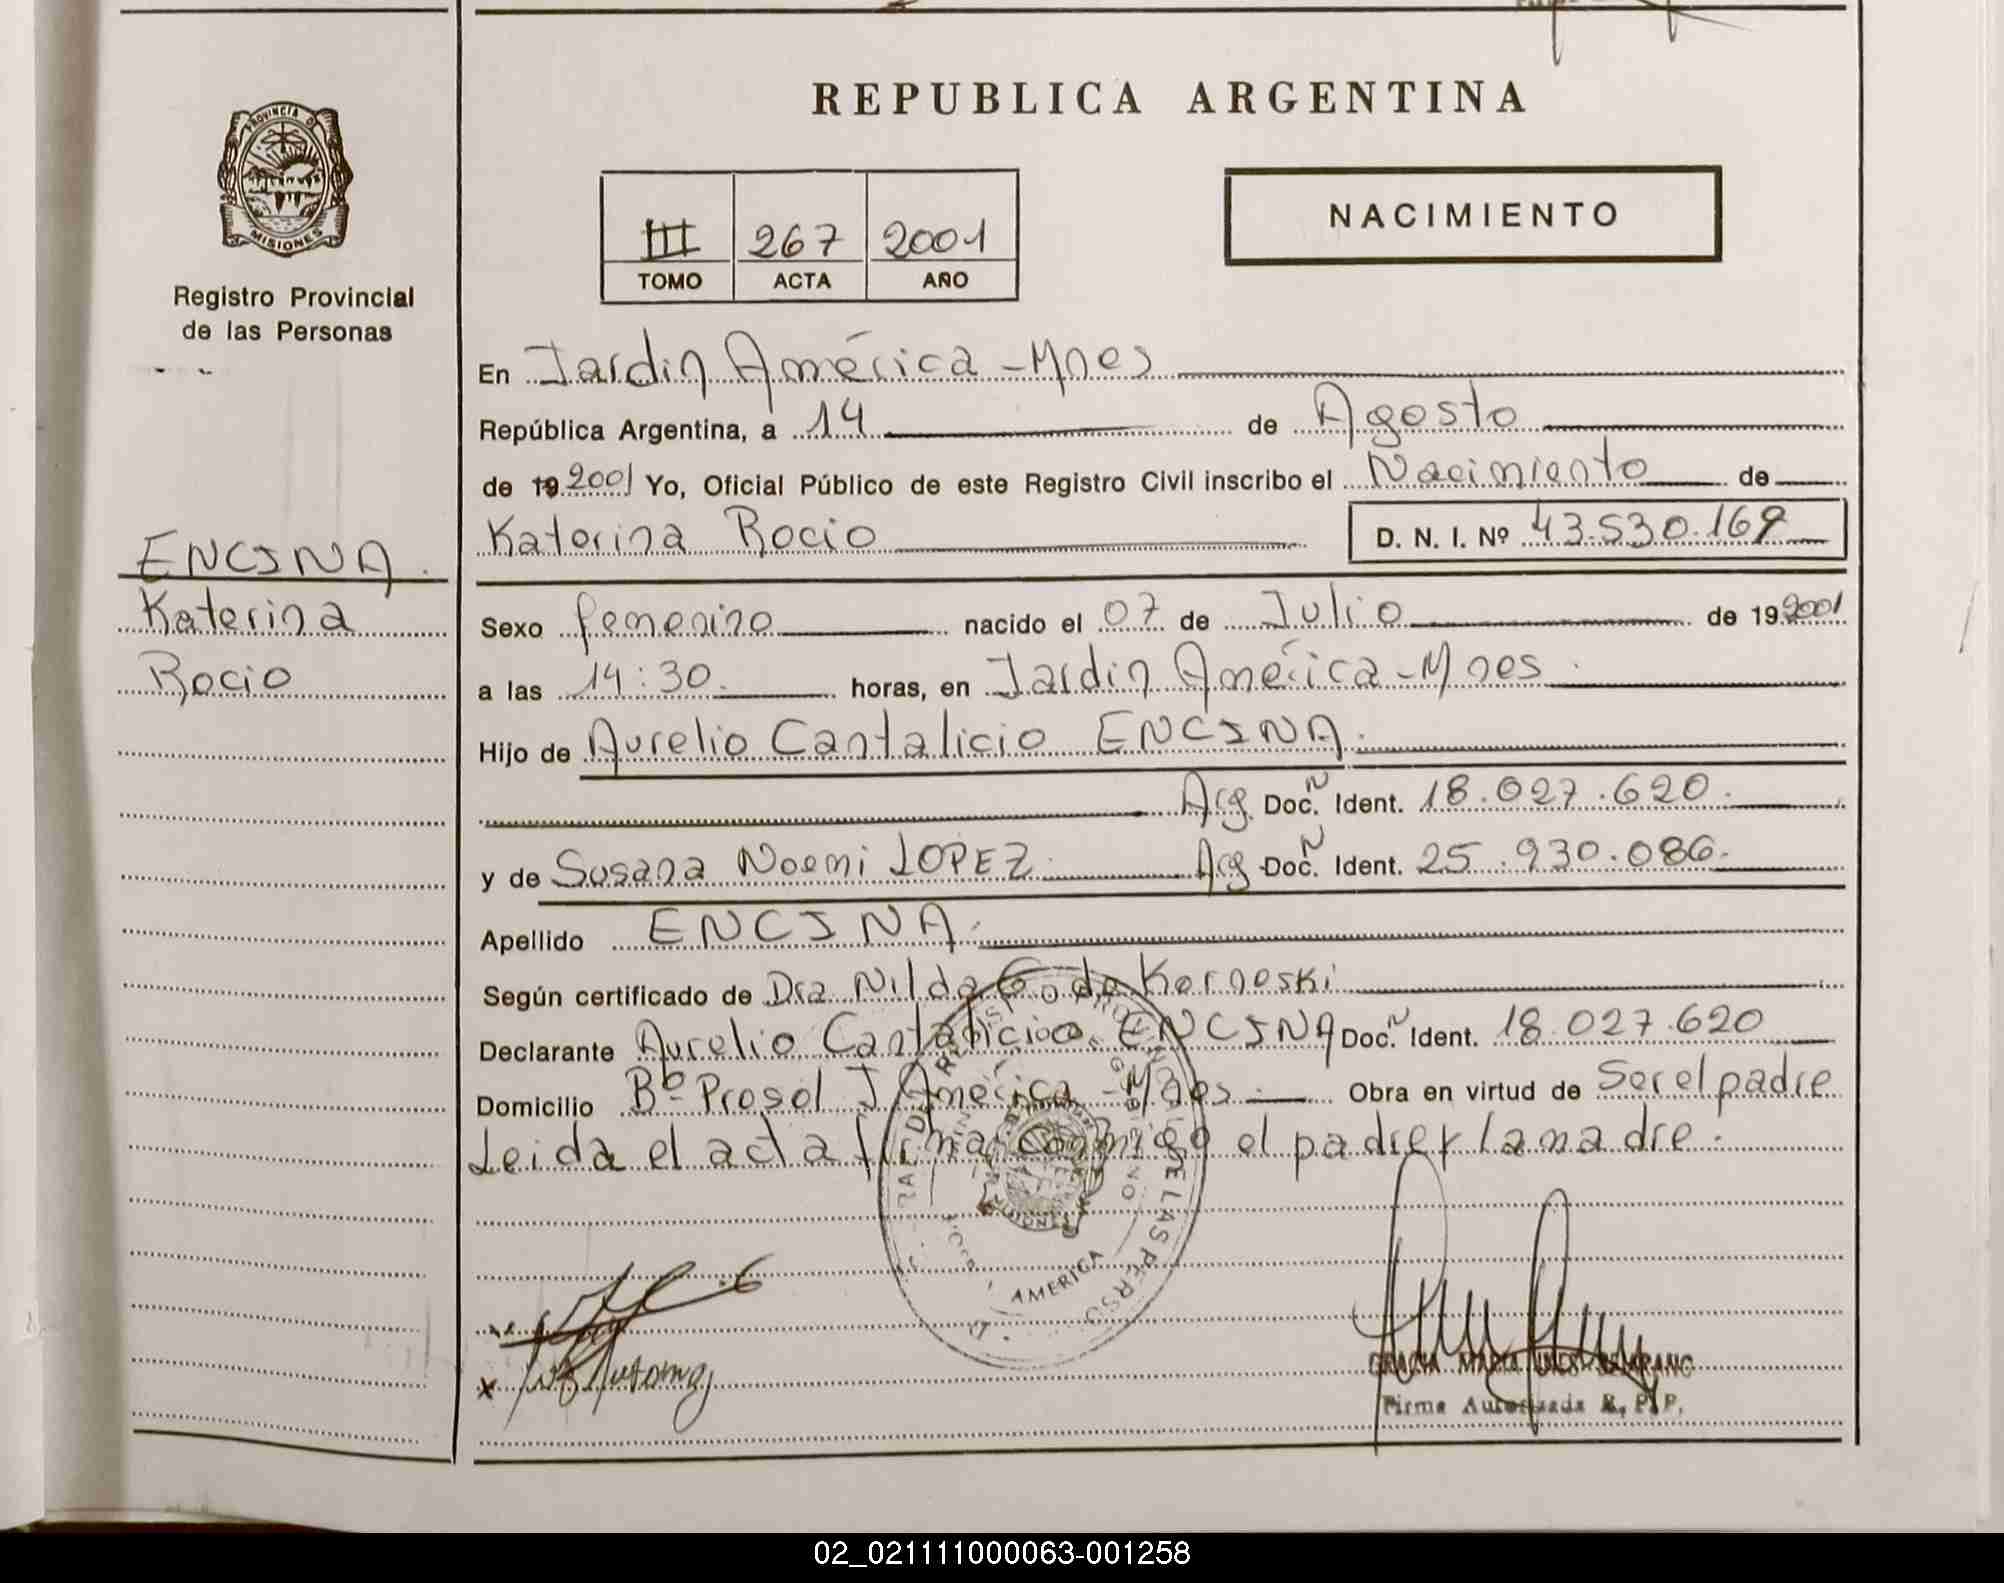 REPUBLICA ARGENTINA
PROVINCIA D
MISIONES
Registro Provincial
de las Personas
III 267 2001
TOMO ACTA AÑO
NACIMIENTO
En Jardin América - Mnes
República Argentina, a 14 de Agosto
de 19 2001 Yo, Oficial Público de este Registro Civil inscribo el Nacimiento de
Katerina Rocio D. N. I. Nº 43.530.169
ENCINA
Katerina
Rocio
Sexo femenino nacido el 07 de Julio de 19 2001
a las 14:30. horas, en Jardin América - Mnes.
Hijo de Aurelio Cantalicio ENCINA.
Arg. Doc. N Ident. 18.027.620.
y de Susana Noemi LOPEZ. Arg Doc. N Ident. 25.930.086.
Apellido ENCINA.
Según certificado de Dra Nilda G. de Kerneski
Declarante Aurelio Cantalicio ENCINA Doc. N Ident. 18.027.620
Domicilio Bº Prosol J. América - Mnes. Obra en virtud de Ser el padre
Leida el acta firman conmigo el padre y la madre.
AMERICA
Firma Autorizada R. P. P.
02_021111000063-001258